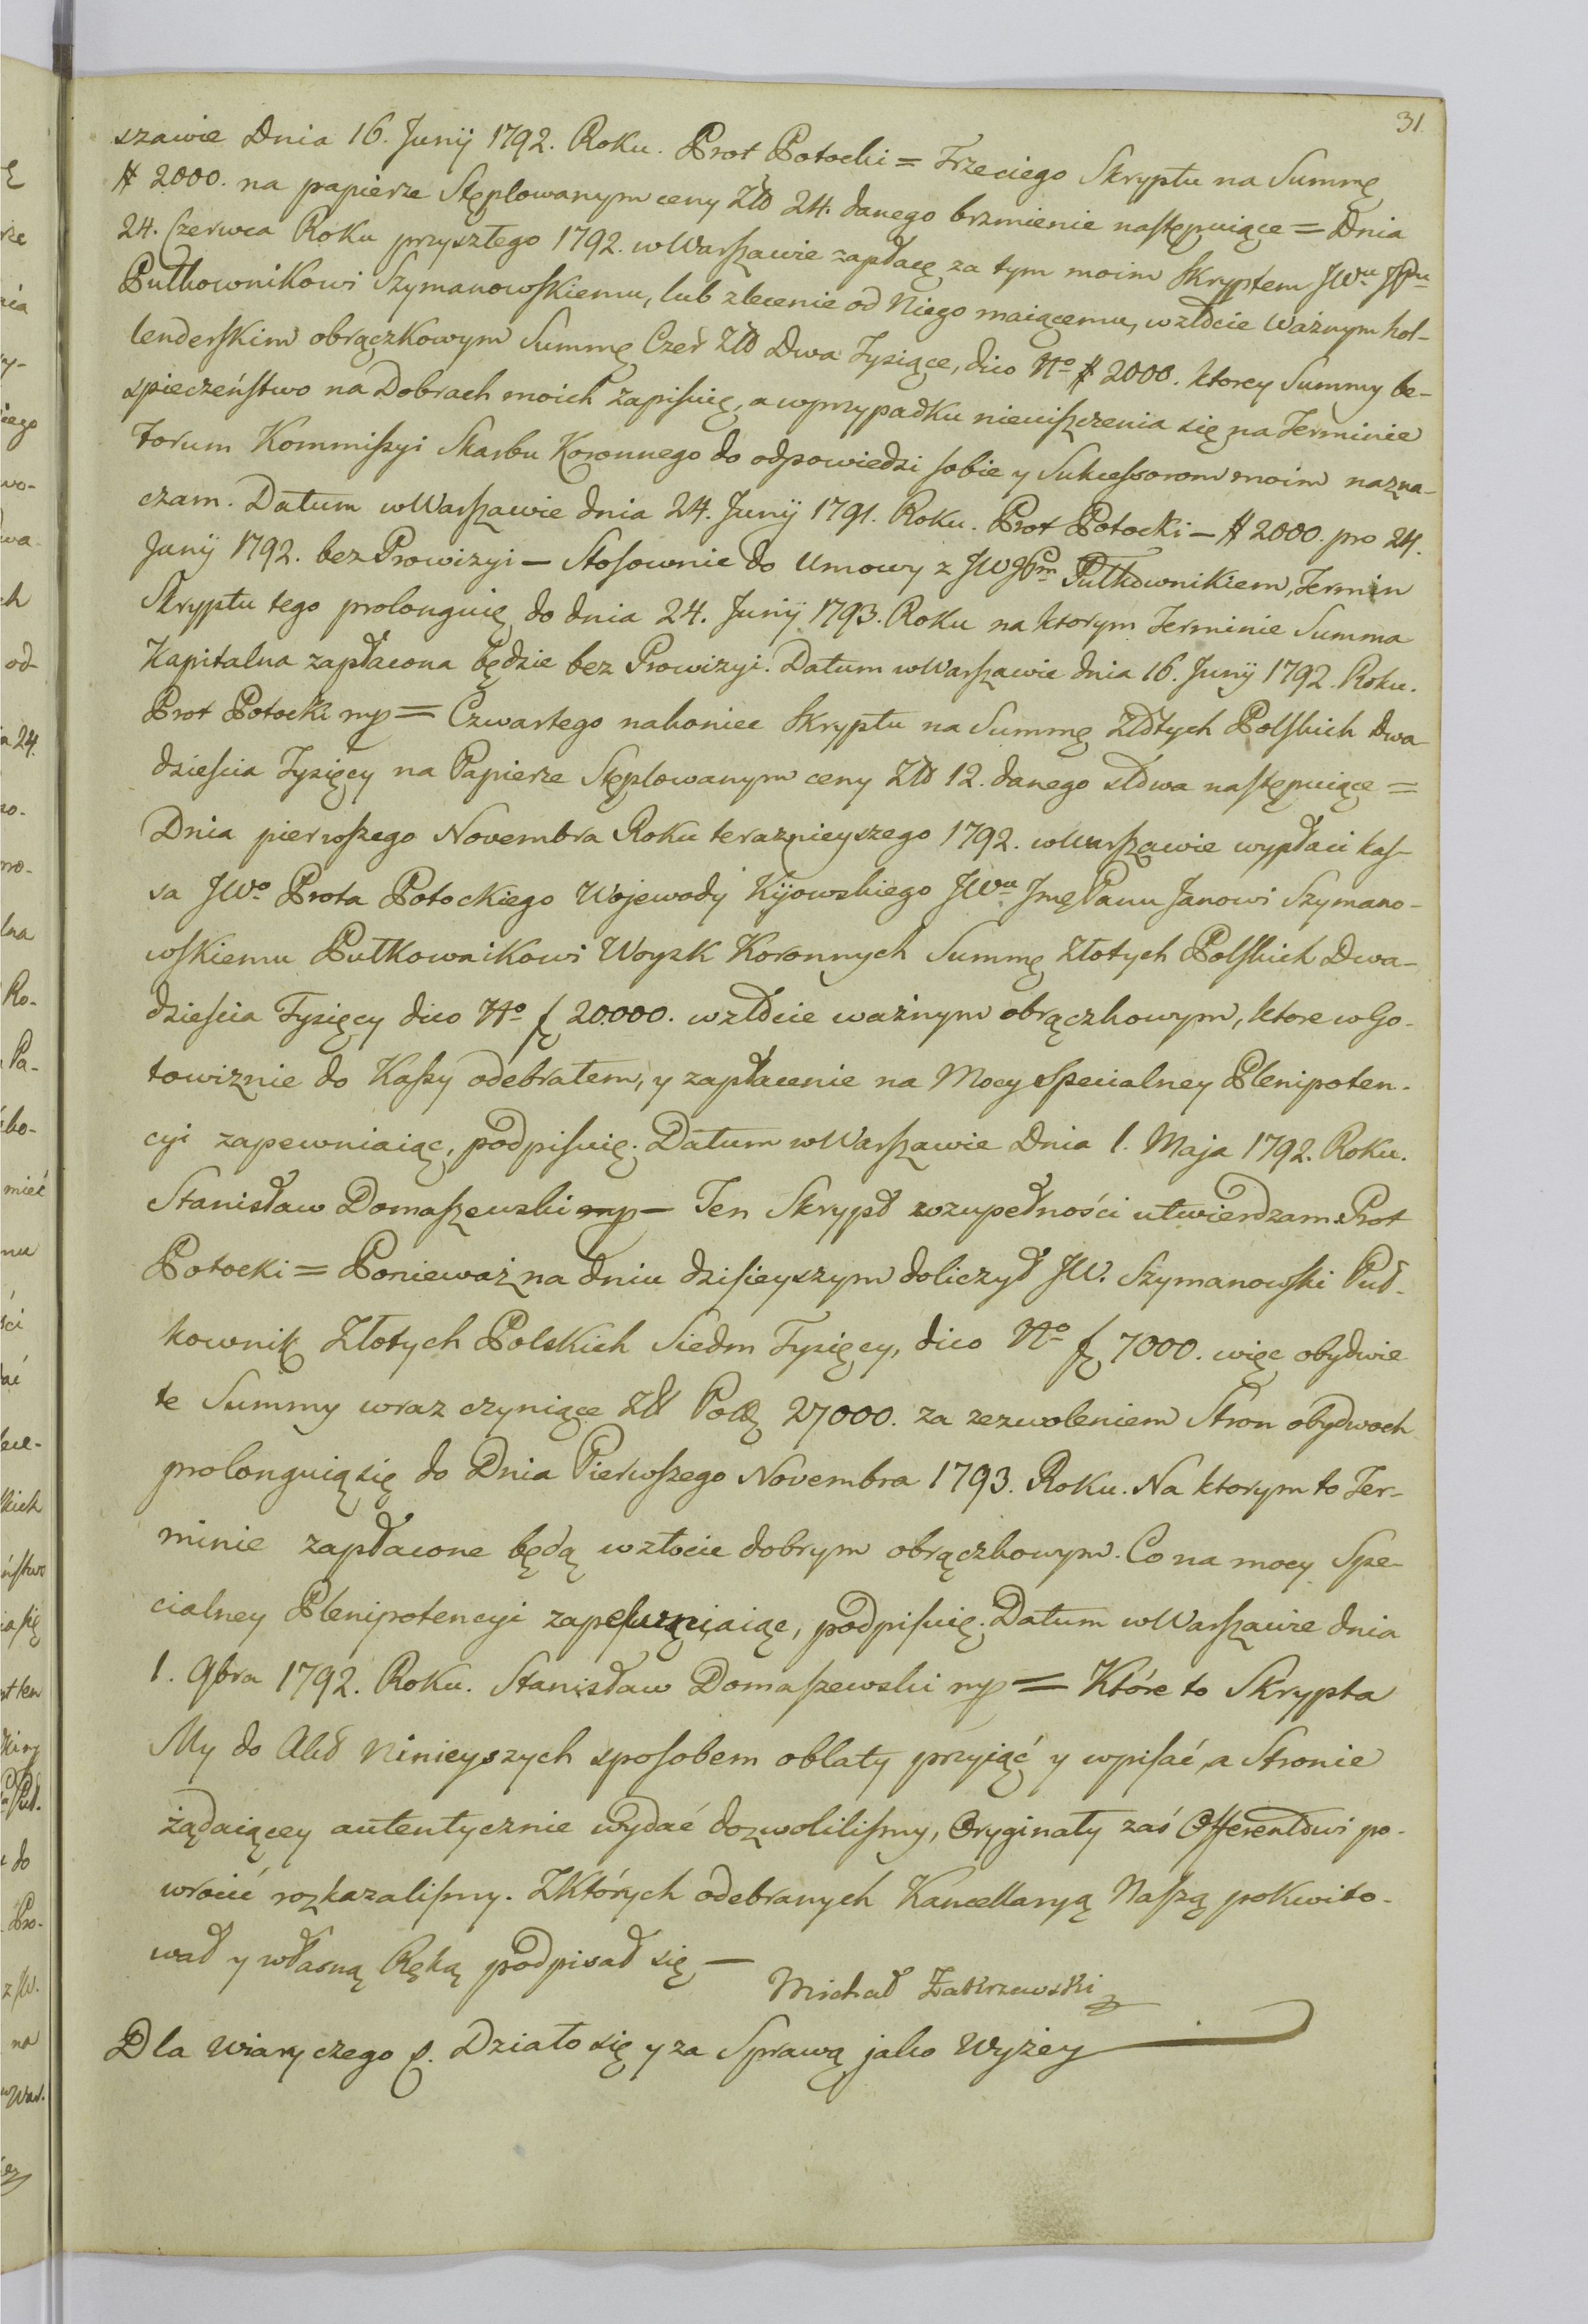 31
szawie Dnia 16. Junÿ 1792. Roku. Prot Potocki = Trzeciego Skryptu na Summę
# 2000. na papierze Stęplowanym ceny Złł 24. danego brzmienie następuiące = Dnia
24. Czerwca Roku przyszłego 1792. w Warszawie zapłacę za tym moim Skryptem JWu JPu
Pułkownikowi Szymanowskiemu, lub zlecenie od Niego maiącemu, wzłocie Ważnym hol-
lenderskim obrączkowym Summę Czer Złł Dwa Tysiące, dico No # 2000. ktorey Summy be-
spieczeństwo na Dobrach moich zapisuię, a wprzypadku nieuiszczenia się na Terminie
Forum Kommissyi Skarbu Koronnego do odpowiedzi sobie y Sukcessorom moim nazna-
czam. Datum w Warszawie dnia 24. Junÿ 1791. Roku. Prot Potocki — # 2000. pro 24.
Junÿ 1792. bez Prowizyi — Stosownie do Umowy z JWJPm Pułkownikiem, Termin
Skryptu tego prolonguię do dnia 24. Junÿ 1793. Roku na ktorym Terminie Summa
Kapitalna zapłacona będzie bez Prowizyi. Datum w Warszawie dnia 16. Junÿ 1792. Roku.
Prot Potocki mp = Czwartego nakoniec Skryptu na Summę Złotych Polskich Dwa-
dzieścia Tysięcy na Papierze Stęplowanym ceny Złł 12. danego słowa następuiące =
Dnia pierwszego Novembra Roku teraznieyszego 1792. w Warszawie wypłaci kas-
sa JWo Prota Potockiego Wojewody Kijowskiego JWu Jmę Panu Janowi Szymano-
wskiemu Pułkownikowi Woysk Koronnych Summę Złotych Polskich Dwa-
dzieścia Tysięcy dico No f 20.000. wzłocie ważnym obrączkowym, ktore w Go-
towiznie do Kassy odebrałem, y zapłacenie na Mocy Specialney Plenipoten-
cyi zapewniaiąc, podpisuię. Datum w Warszawie Dnia 1. Maja 1792. Roku.
Stanisław Domaszewski mp — Ten Skrypt wzupełności utwierdzam Prot
Potocki = Ponieważ na dniu dzisieyszym doliczył JW. Szymanowski Puł-
kownik Złotych Polskich Siedm Tysięcy, dico No f 7000. więc obydwie
te Summy wraz czyniące Złł Pol 27000. za zezwoleniem Stron obydwoch
prolonguią się do Dnia Pierwszego Novembra 1793. Roku. Na ktorym to Ter-
minie zapłacone będą wzłocie dobrym obrączkowym. Co na mocy Spe-
cialney Plenipotencyi zapewniaiąc, podpisuię. Datum w Warszawie dnia
1. 9bra 1792. Roku. Stanisław Domaszewski mp = Które to Skrypta
My do Akt Ninieyszych sposobem oblaty przyiąć y wpisać, a Stronie
żądaiącey autentycznie wydać dozwolilismy, Oryginały zaś Offerentowi po-
wrócić rozkazalismy. Z Których odebranych Kancellaryą Naszą pokwito-
wał y własną Ręką podpisał się —
Michał Zakrzewski
Dla wiary czego p. Działo się y za Sprawą jako Wyżey